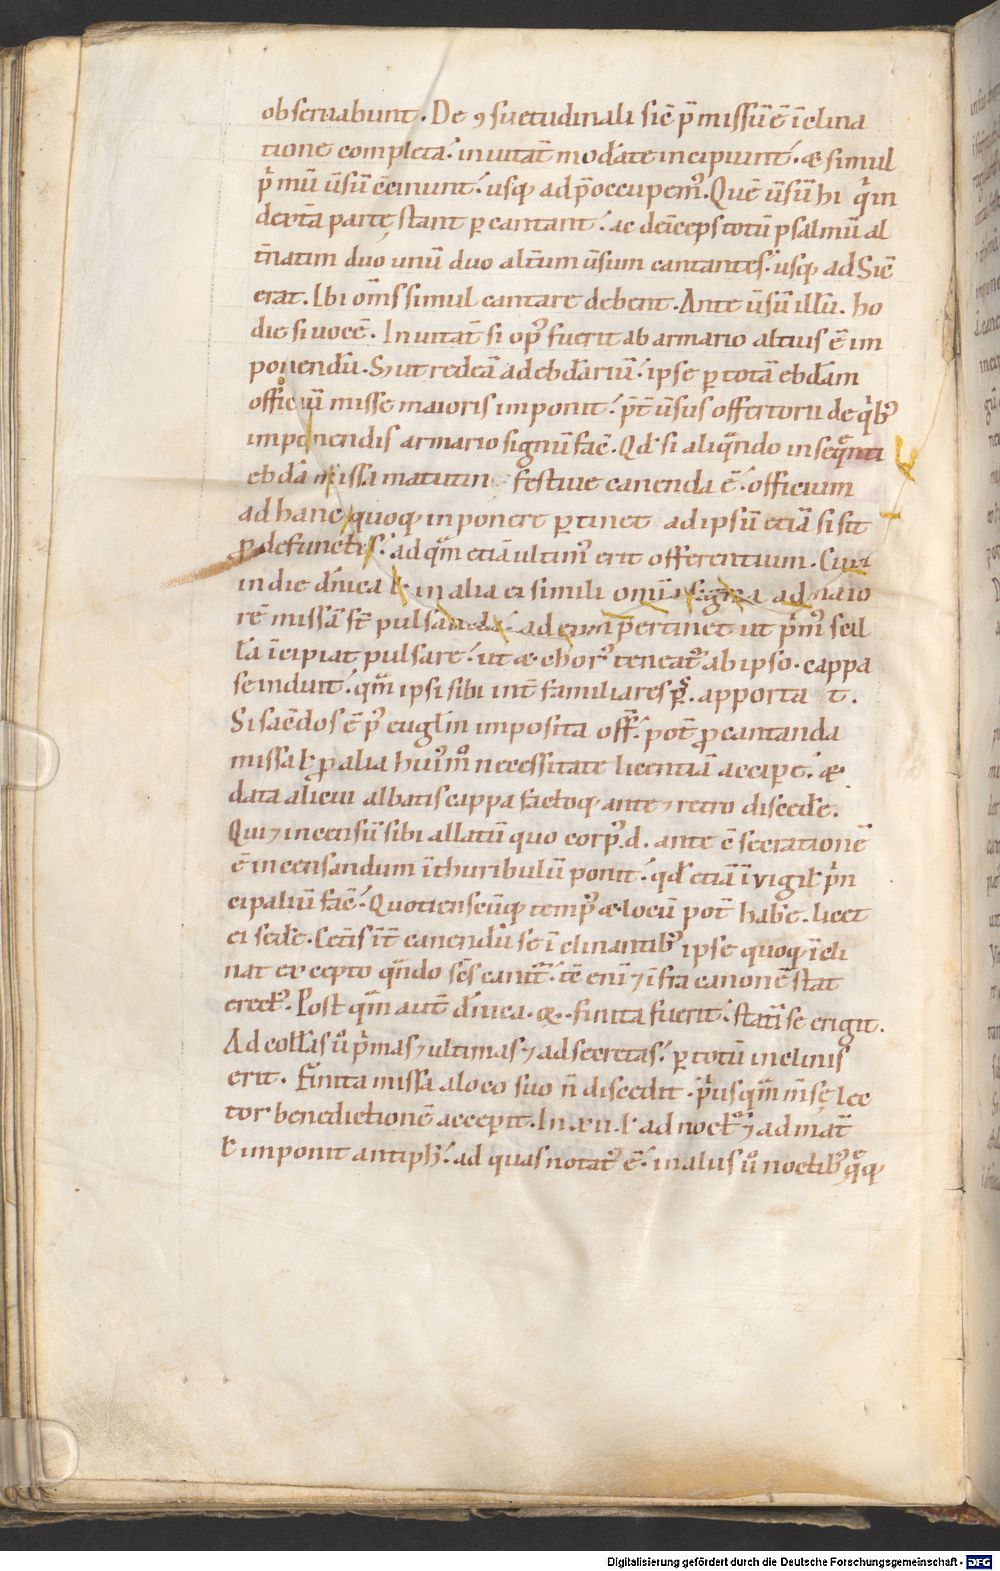 obseruabunt. De ꝯsuetudinali sic̄ p̄missū ē īclina
tione completa. inuitat̄ moderate incipiunt. & simul
p̍mū ūsū c̄cinunt. usq; ad p̄occupem᷒. Quē ūsū hi q̍ in
dext̄a parte stant ꝑcantant. ac deīceps totū psalmū al
t̄natim duo unū duo alt̄um ūsum cantantes. usq; ad Sic̄
erat. Ibi om̄s simul cantare debent. Ante ūsū illū. ho
die si uocē. Inuitat̄ si op᷒ fuerit ab armario altius ē im
ponendū. S; ut redeā ad ebdōariū. ipse ꝑ totā ebdōam
officiū misse maioris imponit. p̄t̄ ūsus offertorii de q̍b᷒
imponendis armario signū fac̄. Qd̄ si aliqᷓndo in seqᷓnti
ebdā missa matutin festiue canenda ē. officium
ad hanc quoq; inponere ꝑtinet ad ipsū etiā si sit
ꝓ defunctis. ad qᷓm etiā ultim᷒ erit offerentium. Cum
in die dn̄ica ł in alia ei simili omnia signa ad maio
rē missā st̄ pulsanda. ad eum ꝑertinet ut p̍m᷒ scil
la īcipiat pulsare. ut & chor᷒ teneat᷒ ab ipso. cappa
se induit. qᷓm ipsi sibi int̄ familiares apporta t.
Si sac̄dos ē p᷒ euglm̄ imposita off̄. pot̄ ꝓ cantanda
missa ł ꝓ alia hui᷒m̊ necessitate licentiā accipe. &
data alicui albatis cappa facto q; ante ⁊ retro disced̄e.
Qui ⁊ incensū sibi allatū quo corp᷒.d. ante c̄secrationē
ē incensandum ī thuribulū ponit. qd̄ etiā ī vigił p̍n
cipaliū fac̄. Quotienscūq; temp᷒ & locū pot̄ hab̄e. licet
ei sed̄e. Cet̄is it̄ canendū se īclinantib᷒ ipse quoq; īcli
nat excepto qᷓndo sc̄s canit᷒. tc̄ eni ⁊ īfra canonē stat
erect᷒. Post qᷓm aut̄ dn̄ica.oꝛ. finita fuerit. statī se erigit.
Ad coll̄as ů p̍mas ⁊ ultimas ⁊ ad secretas. ꝑ totū inclinis
erit. Finita missa a loco suo n̄ discedit. p̍usqᷓm mse lec
tor benedictionē acceperit. In .xii. ł ad noct᷒ ⁊ ad mat̄
ł imponit antiph̄. ad quas notat᷒ ē. in aliis ů noctib᷒ qᷓq;